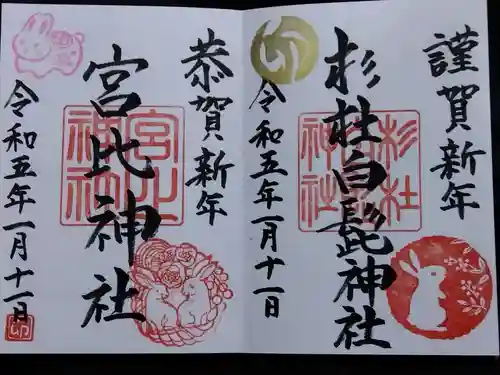 謹賀新年
杉杜白髭神社
杉杜
神社
令和五年一月十一日
恭賀新年
宮比神社
令和五年一月十一日